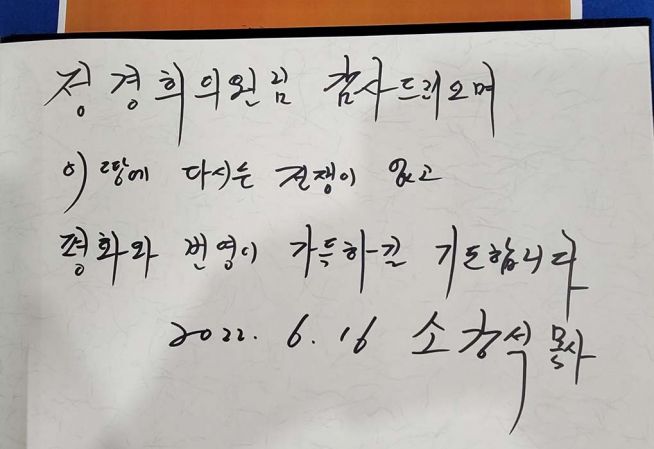 정경희의원님 감사드리오며
이 땅에 다시는 전쟁이 없고
평화와 번영이 가득하길 기도합니다
2022. 6. 16 소강석 목사